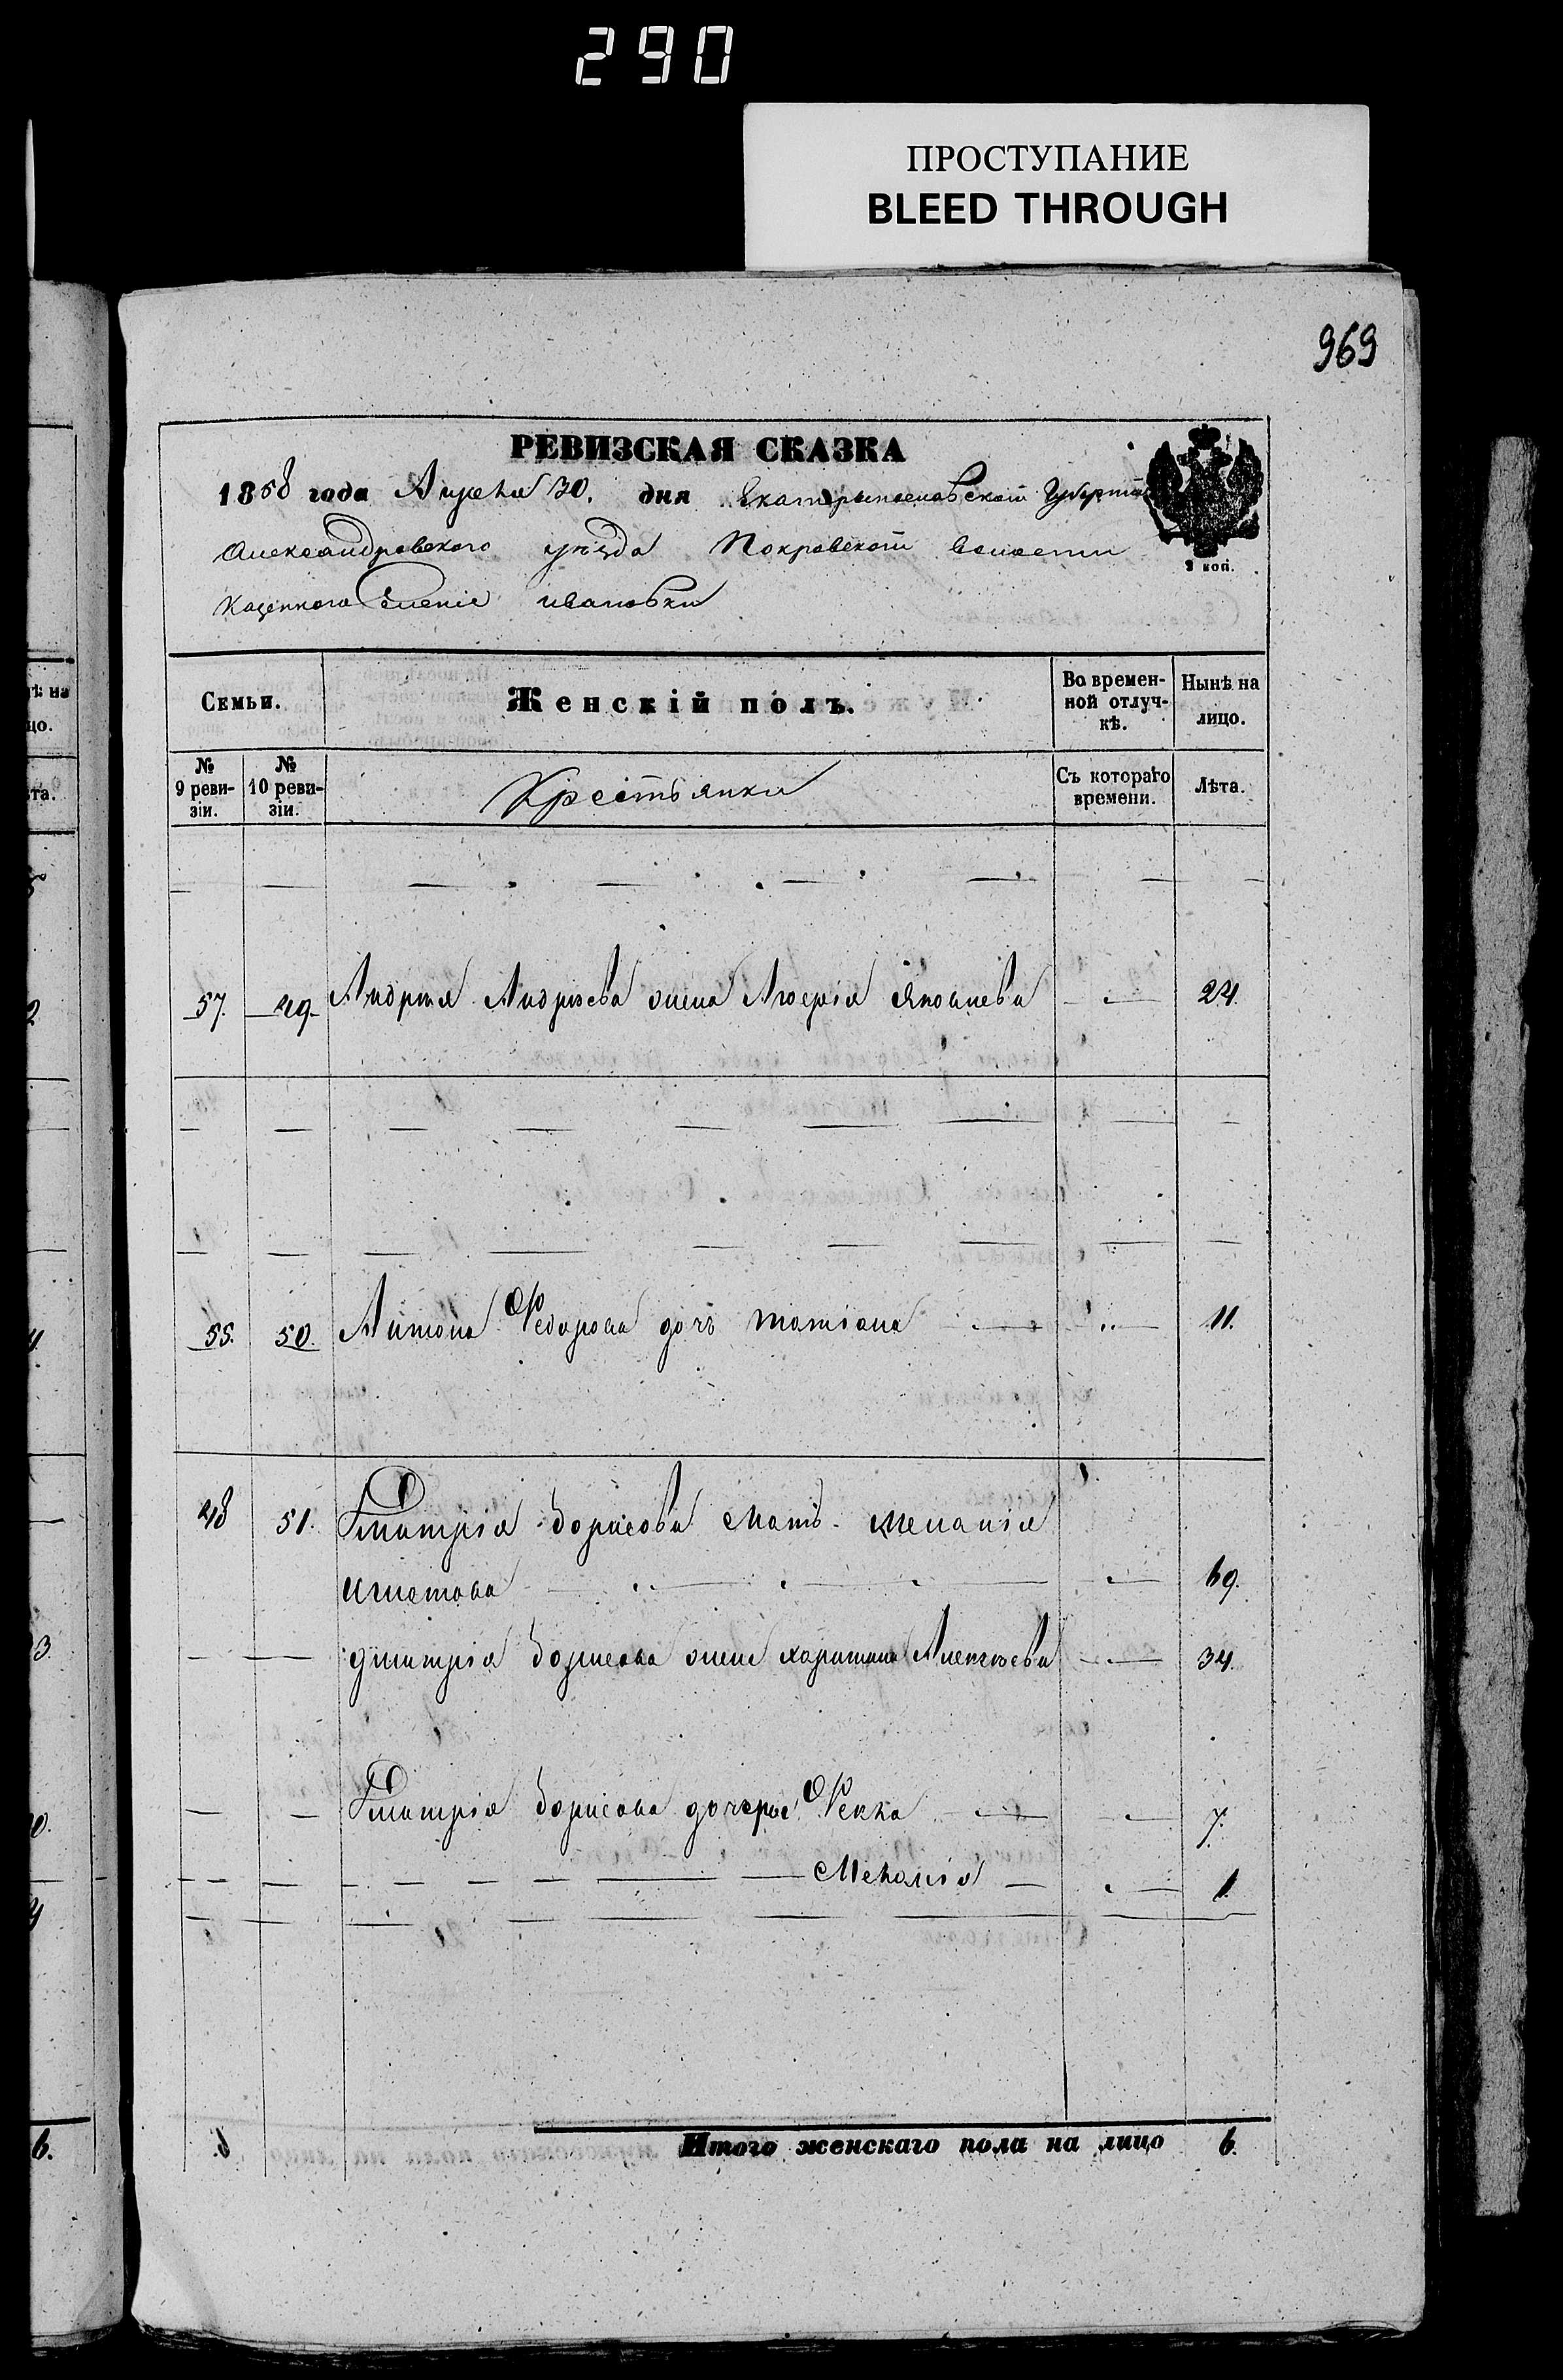 290
ПРОСТУПАНИЕ
BLEED THROUGH
969
РЕВИЗСКАЯ СКАЗКА
1858 года Апреля 30. дня Екатериносла́вской Губерніи
Александровского уѣзда Покровской волости
Казенного Селенія Ивановки
2 коп.
Семьи. Женскій полъ. Во времен-ной отлуч-кѣ. Нынѣ на лицо.
№ 9 реви-зіи. № 10 реви-зіи. Крестьянки Съ котораго времени. Лѣта.
57. 49. Андрея Андрѣева жена Яковлева 24.
55. 50. Антона Федорова дочь Татіана 11.
48 51. Дмитрія Борисова мать Меланія
Игнатова 69.
Дмитрія Борисова жена Харитина Алексѣева 34.
Дмитрія Борисова дочери Фекла 7.
Меланія 1.
Итого женскаго пола на лицо 6.